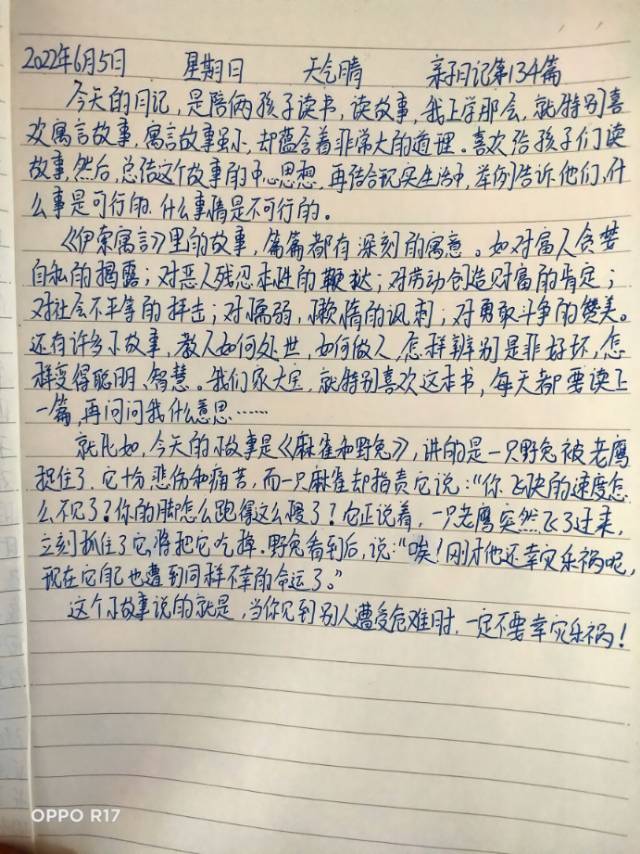 2022年6月5日 星期日 天气晴 亲子日记第134篇
今天的日记,是陪俩孩子读书,读故事,我上学那会,就特别喜
欢寓言故事,寓言故事虽小,却蕴含着非常大的道理。喜欢给孩子们读
故事,然后,总结这个故事的中心思想,再结合现实生活中,举例告诉他们,什
么事是可行的.什么事情是不可行的。
《伊索寓言》里的故事,篇篇都有深刻的寓意。如对富人贪婪
自私的揭露;对恶人残忍本性的鞭挞;对劳动创造财富的肯定;
对社会不平等的抨击;对懦弱,懒惰的讽刺;对勇敢斗争的赞美。
还有许多小故事,教人如何处世,如何做人,怎样辨别是非好坏,怎
样变得聪明,智慧。我们家大宝,就特别喜欢这本书,每天都要读上
一篇,再问问我什么意思……
就比如,今天的小故事是《麻雀和野兔》,讲的是一只野兔被老鹰
捉住了.它十分悲伤和痛苦,而一只麻雀却指责它说:“你飞快的速度怎
么不见了?你的脚怎么跑得这么慢了?它正说着,一只老鹰突然飞了过来,
立刻抓住了它,将把它吃掉.野兔看到后,说:“唉!刚才他还幸灾乐祸呢,
现在它自己也遭到同样不幸的命运了。”
这个小故事说的就是,当你见到别人遭受危难时,一定不要幸灾乐祸!
OPPO R17